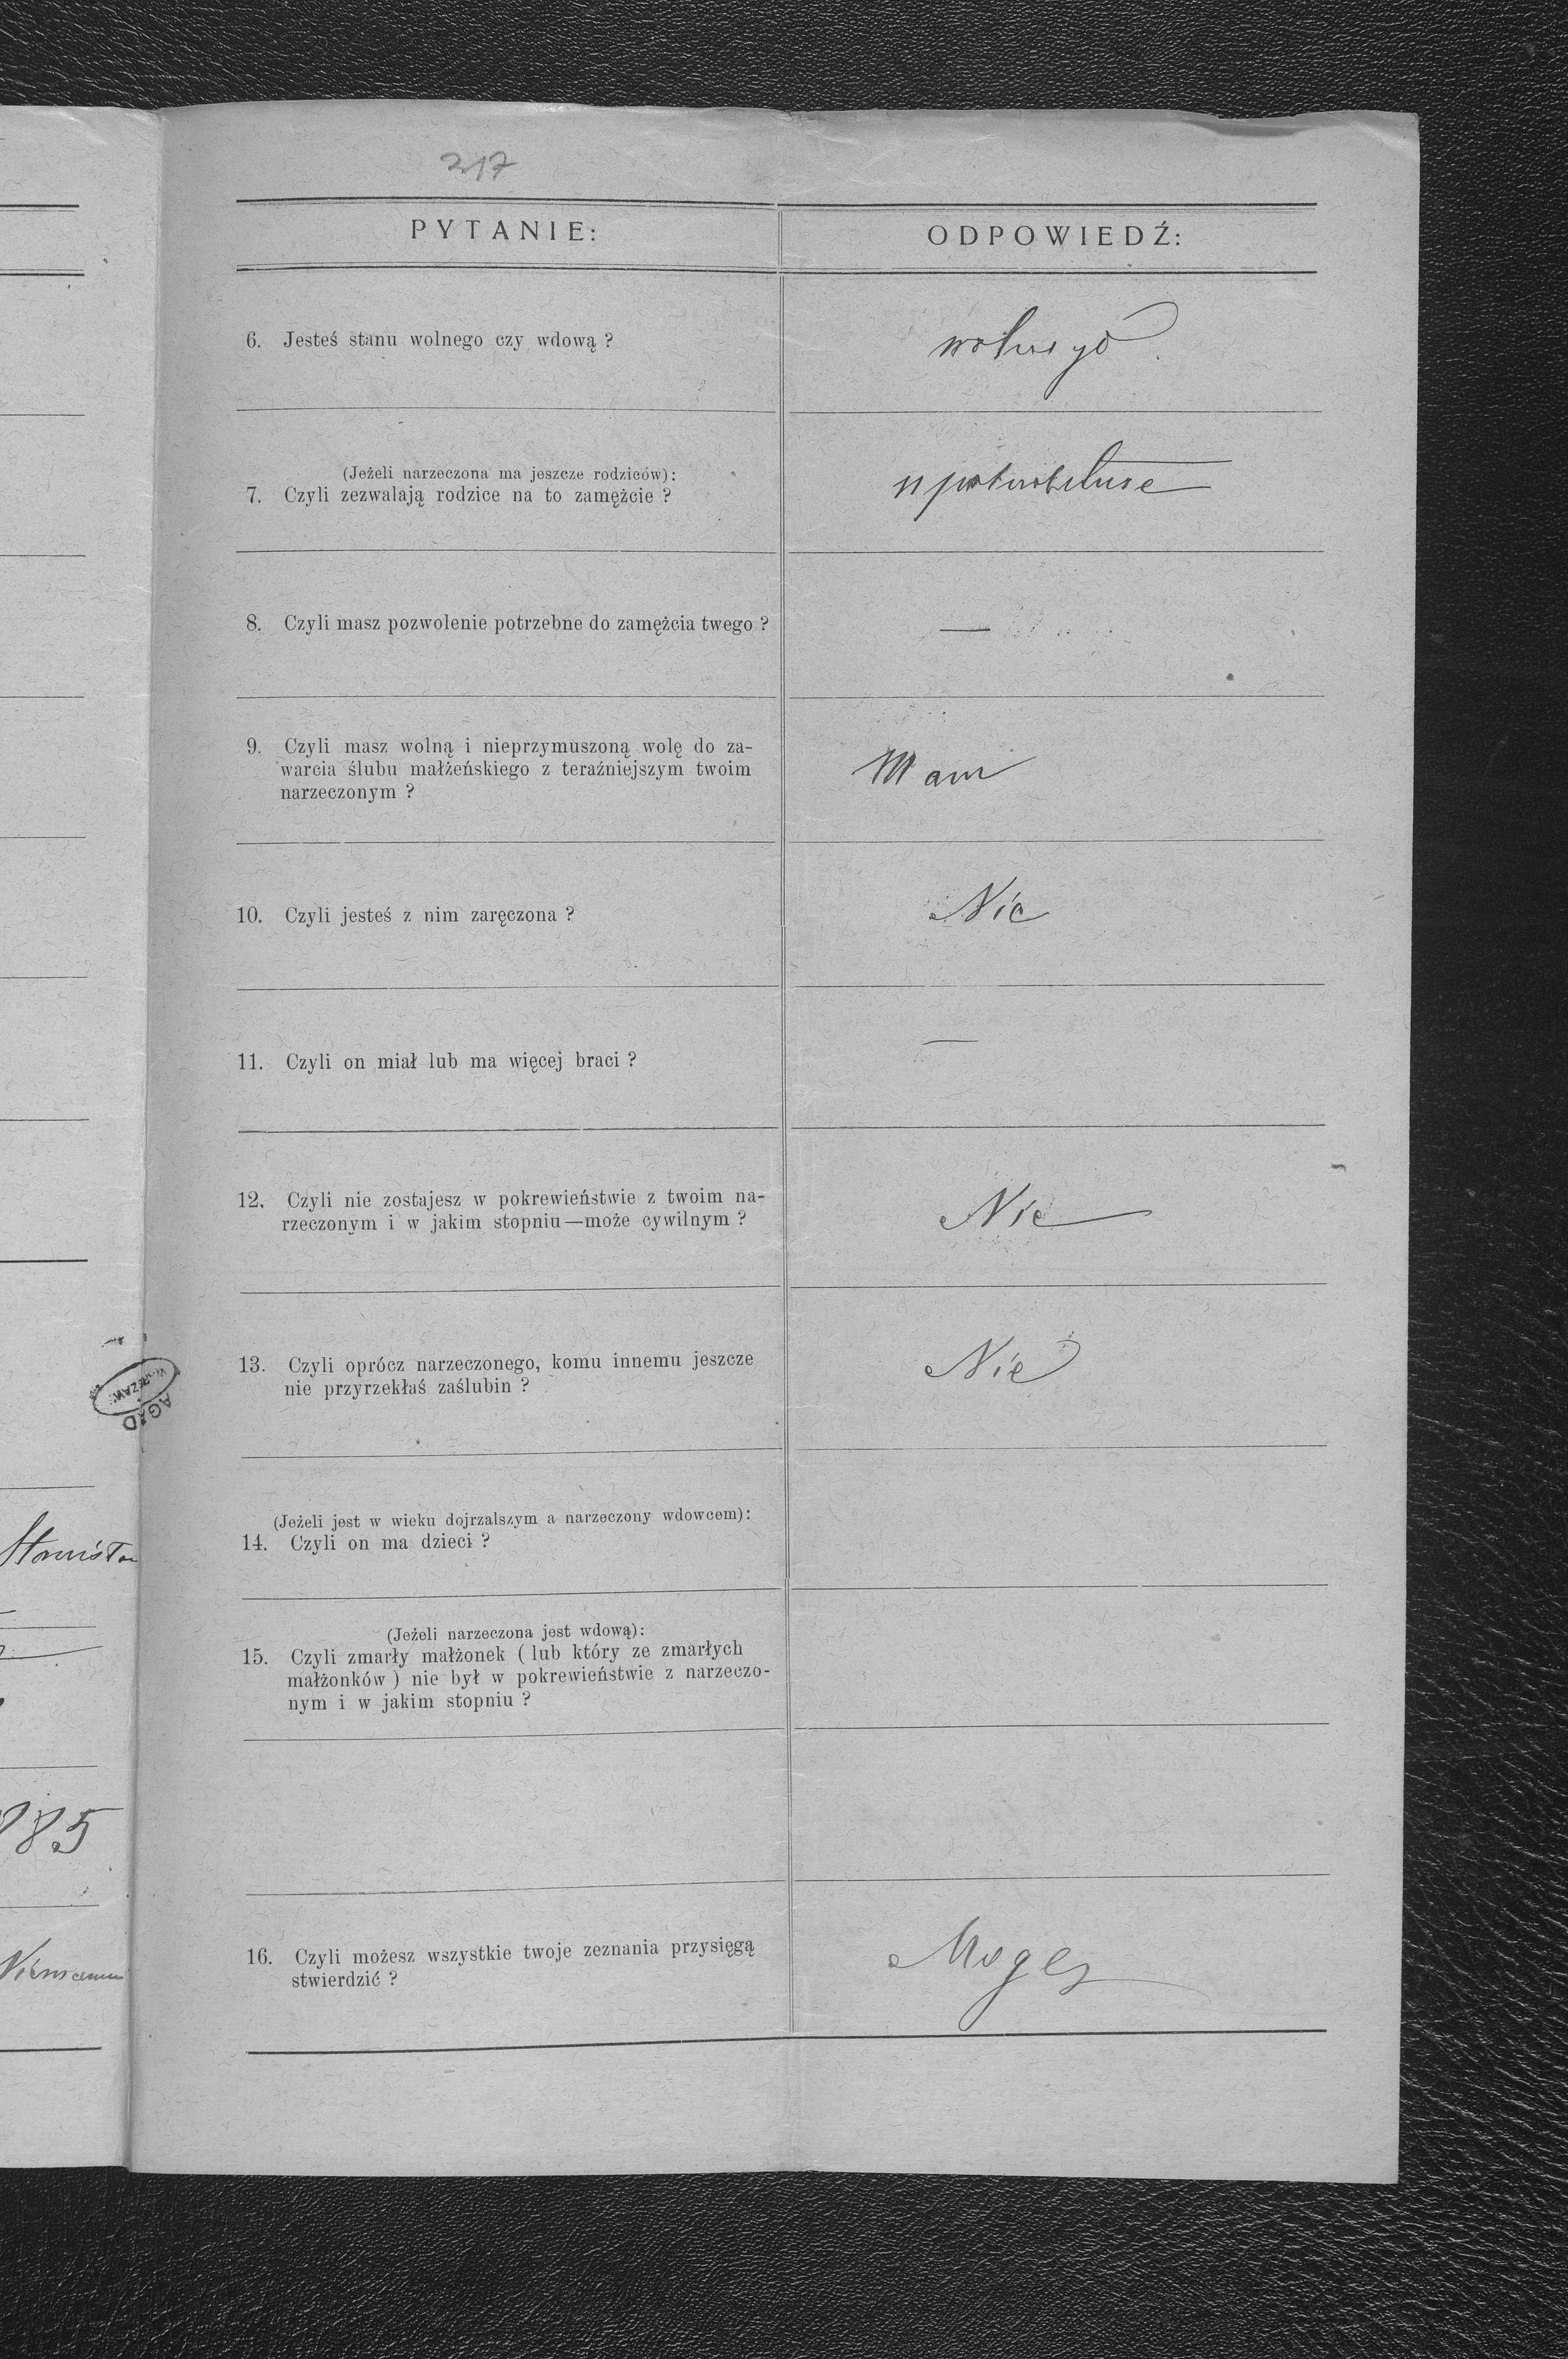 217
PYTANIE:
ODPOWIEDŹ:
6. Jesteś stanu wolnego czy wdową ?
wolnego
(Jeżeli narzeczona ma jeszcze rodziców):
7. Czyli zezwalają rodzice na to zamężcie ?
8. Czyli masz pozwolenie potrzebne do zamężcia twego ?
—
9. Czyli masz wolną i nieprzymuszoną wolę do za-
warcia ślubu małżeńskiego z teraźniejszym twoim
narzeczonym ?
Mam
10. Czyli jesteś z nim zaręczona ?
Nie
11. Czyli on miał lub ma więcej braci ?
—
12. Czyli nie zostajesz w pokrewieństwie z twoim na-
rzeczonym i w jakim stopniu—może cywilnym ?
Nie
13. Czyli oprócz narzeczonego, komu innemu jeszcze
nie przyrzekłaś zaślubin ?
Nie
(Jeżeli jest w wieku dojrzalszym a narzeczony wdowcem):
14. Czyli on ma dzieci ?
(Jeżeli narzeczona jest wdową):
15. Czyli zmarły małżonek ( lub który ze zmarłych
małżonków ) nie był w pokrewieństwie z narzeczo-
nym i w jakim stopniu ?
16. Czyli możesz wszystkie twoje zeznania przysięgą
stwierdzić ?
Mogę
AGAD
885